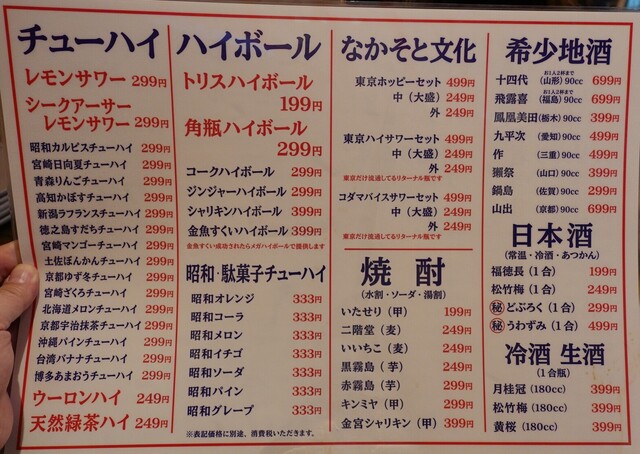 チューハイ
レモンサワー 299円
シークアーサー
レモンサワー 299円
昭和カルピスチューハイ 299円
宮崎日向夏チューハイ 299円
青森りんごチューハイ 299円
高知かぼすチューハイ 299円
新潟ラフランスチューハイ 299円
徳之島すだちチューハイ 299円
宮崎マンゴーチューハイ 299円
土佐ぽんかんチューハイ 299円
京都ゆず冬チューハイ 299円
宮崎ざくろチューハイ 299円
北海道メロンチューハイ 299円
京都宇治抹茶チューハイ 299円
沖縄パインチューハイ 299円
台湾バナナチューハイ 299円
博多あまおうチューハイ 299円
ウーロンハイ 249円
天然緑茶ハイ 249円
ハイボール
トリスハイボール
199円
角瓶ハイボール
299円
コークハイボール 299円
ジンジャーハイボール 299円
シャリキンハイボール 399円
金魚すくいハイボール 399円
金魚すくい成功されたらメガハイボールで提供します
昭和・駄菓子チューハイ
昭和オレンジ 333円
昭和コーラ 333円
昭和メロン 333円
昭和イチゴ 333円
昭和ソーダ 333円
昭和パイン 333円
昭和グレープ 333円
※表記価格に別途、消費税いただきます。
なかそと文化
東京ホッピーセット 499円
中（大盛）249円
外 249円
東京ハイサワーセット 499円
中（大盛）249円
外 249円
東京だけ流通してるリターナル瓶です
コダマバイスサワーセット 499円
中（大盛）249円
外 249円
東京だけ流通してるリターナル瓶です
焼酎
（水割・ソーダ・湯割）
いたせり（甲）199円
二階堂（麦）249円
いいちこ（麦）249円
黒霧島（芋）249円
赤霧島（芋）299円
キンミヤ（甲）299円
金宮シャリキン（甲）399円
希少地酒
お1人2杯まで
十四代（山形）90cc 699円
お1人2杯まで
飛露喜（福島）90cc 699円
鳳凰美田（栃木）90cc 399円
九平次（愛知）90cc 499円
作（三重）90cc 499円
獺祭（山口）90cc 399円
鍋島（佐賀）90cc 299円
山出（京都）90cc 699円
日本酒
（常温・冷酒・あつかん）
福徳長（1合）199円
松竹梅（1合）249円
㊙どぶろく（1合）299円
㊙うわずみ（1合）499円
冷酒 生酒
（1合瓶）
月桂冠（180cc）399円
松竹梅（180cc）399円
黄桜（180cc）399円